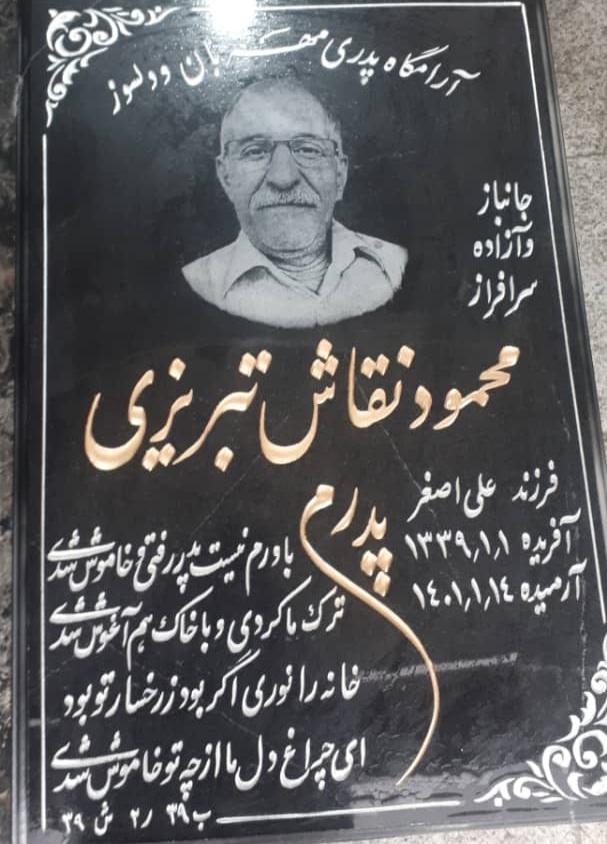 آرامگاه پدری مهربان و دلسوز
جانباز
وآزاده
سرافراز
محمود نقاش تبریزی
فرزند علی اصغر
آفریده ۱۳۳۹٫۱٫۱
آرمیده ۱۴۰۱٫۱٫۱۴
پدرم
باورم نیست پدر رفتی و خاموش شدی
ترک ما کردی و با خاک هم آغوش شدی
خانه را نوری اگر بود ز رخسار تو بود
ای چراغ دل ما از چه تو خاموش شدی
ب ۳۹ ر ۲ ش ۳۹